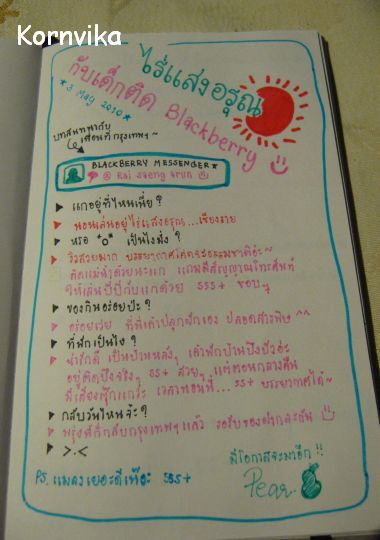 Kornvika
ไร่แสงอรุณ
กับเด็กติด Blackberry
*3 May 2010*
บทสนทนากับ
เพื่อนที่กรุงเทพฯ ~
BLACKBERRY MESSENGER*
@ Rai Saeng Arun
แกอยู่ที่ไหนเนี่ย?
นอนเล่นอยู่ไร่แสงอรุณ...เชียงราย
หรอ *o* เป็นไงมั่ง?
วิวสวยมาก บรรยากาศโคตรธรรมชาติอ่ะ~
ติดแม่น้ำด้วยนะแก แถมมีสัญญาณโทรศัพท์
ให้เล่นบีบีกับแกด้วย 555+ ชอบๆ
ของกินอร่อยป่ะ?
อร่อยเว่ย ที่นี่เค้าปลูกผักเอง ปลอดสารพิษ ^^
ที่พักเป็นไง?
น่ารักดี เป็นบ้านหลังๆ เค้าพักบ้านปีงปัวอ่ะ
อยู่ติดปีงจริงๆ 55+ สวยๆ แต่ตอนกลางคืน
มีเสียงตุ๊กแกว่ะ เวลานอนที่...55+ บรรยากาศได้~
กลับวันไหนจ๊ะ?
พรุ่งนี้ก็กลับกรุงเทพฯแล้ว รอรับของฝากละกัน
>.<
มีโอกาสจะมาอีก !!
Pear.
PS. แมลงเยอะดีเหือะ 555+